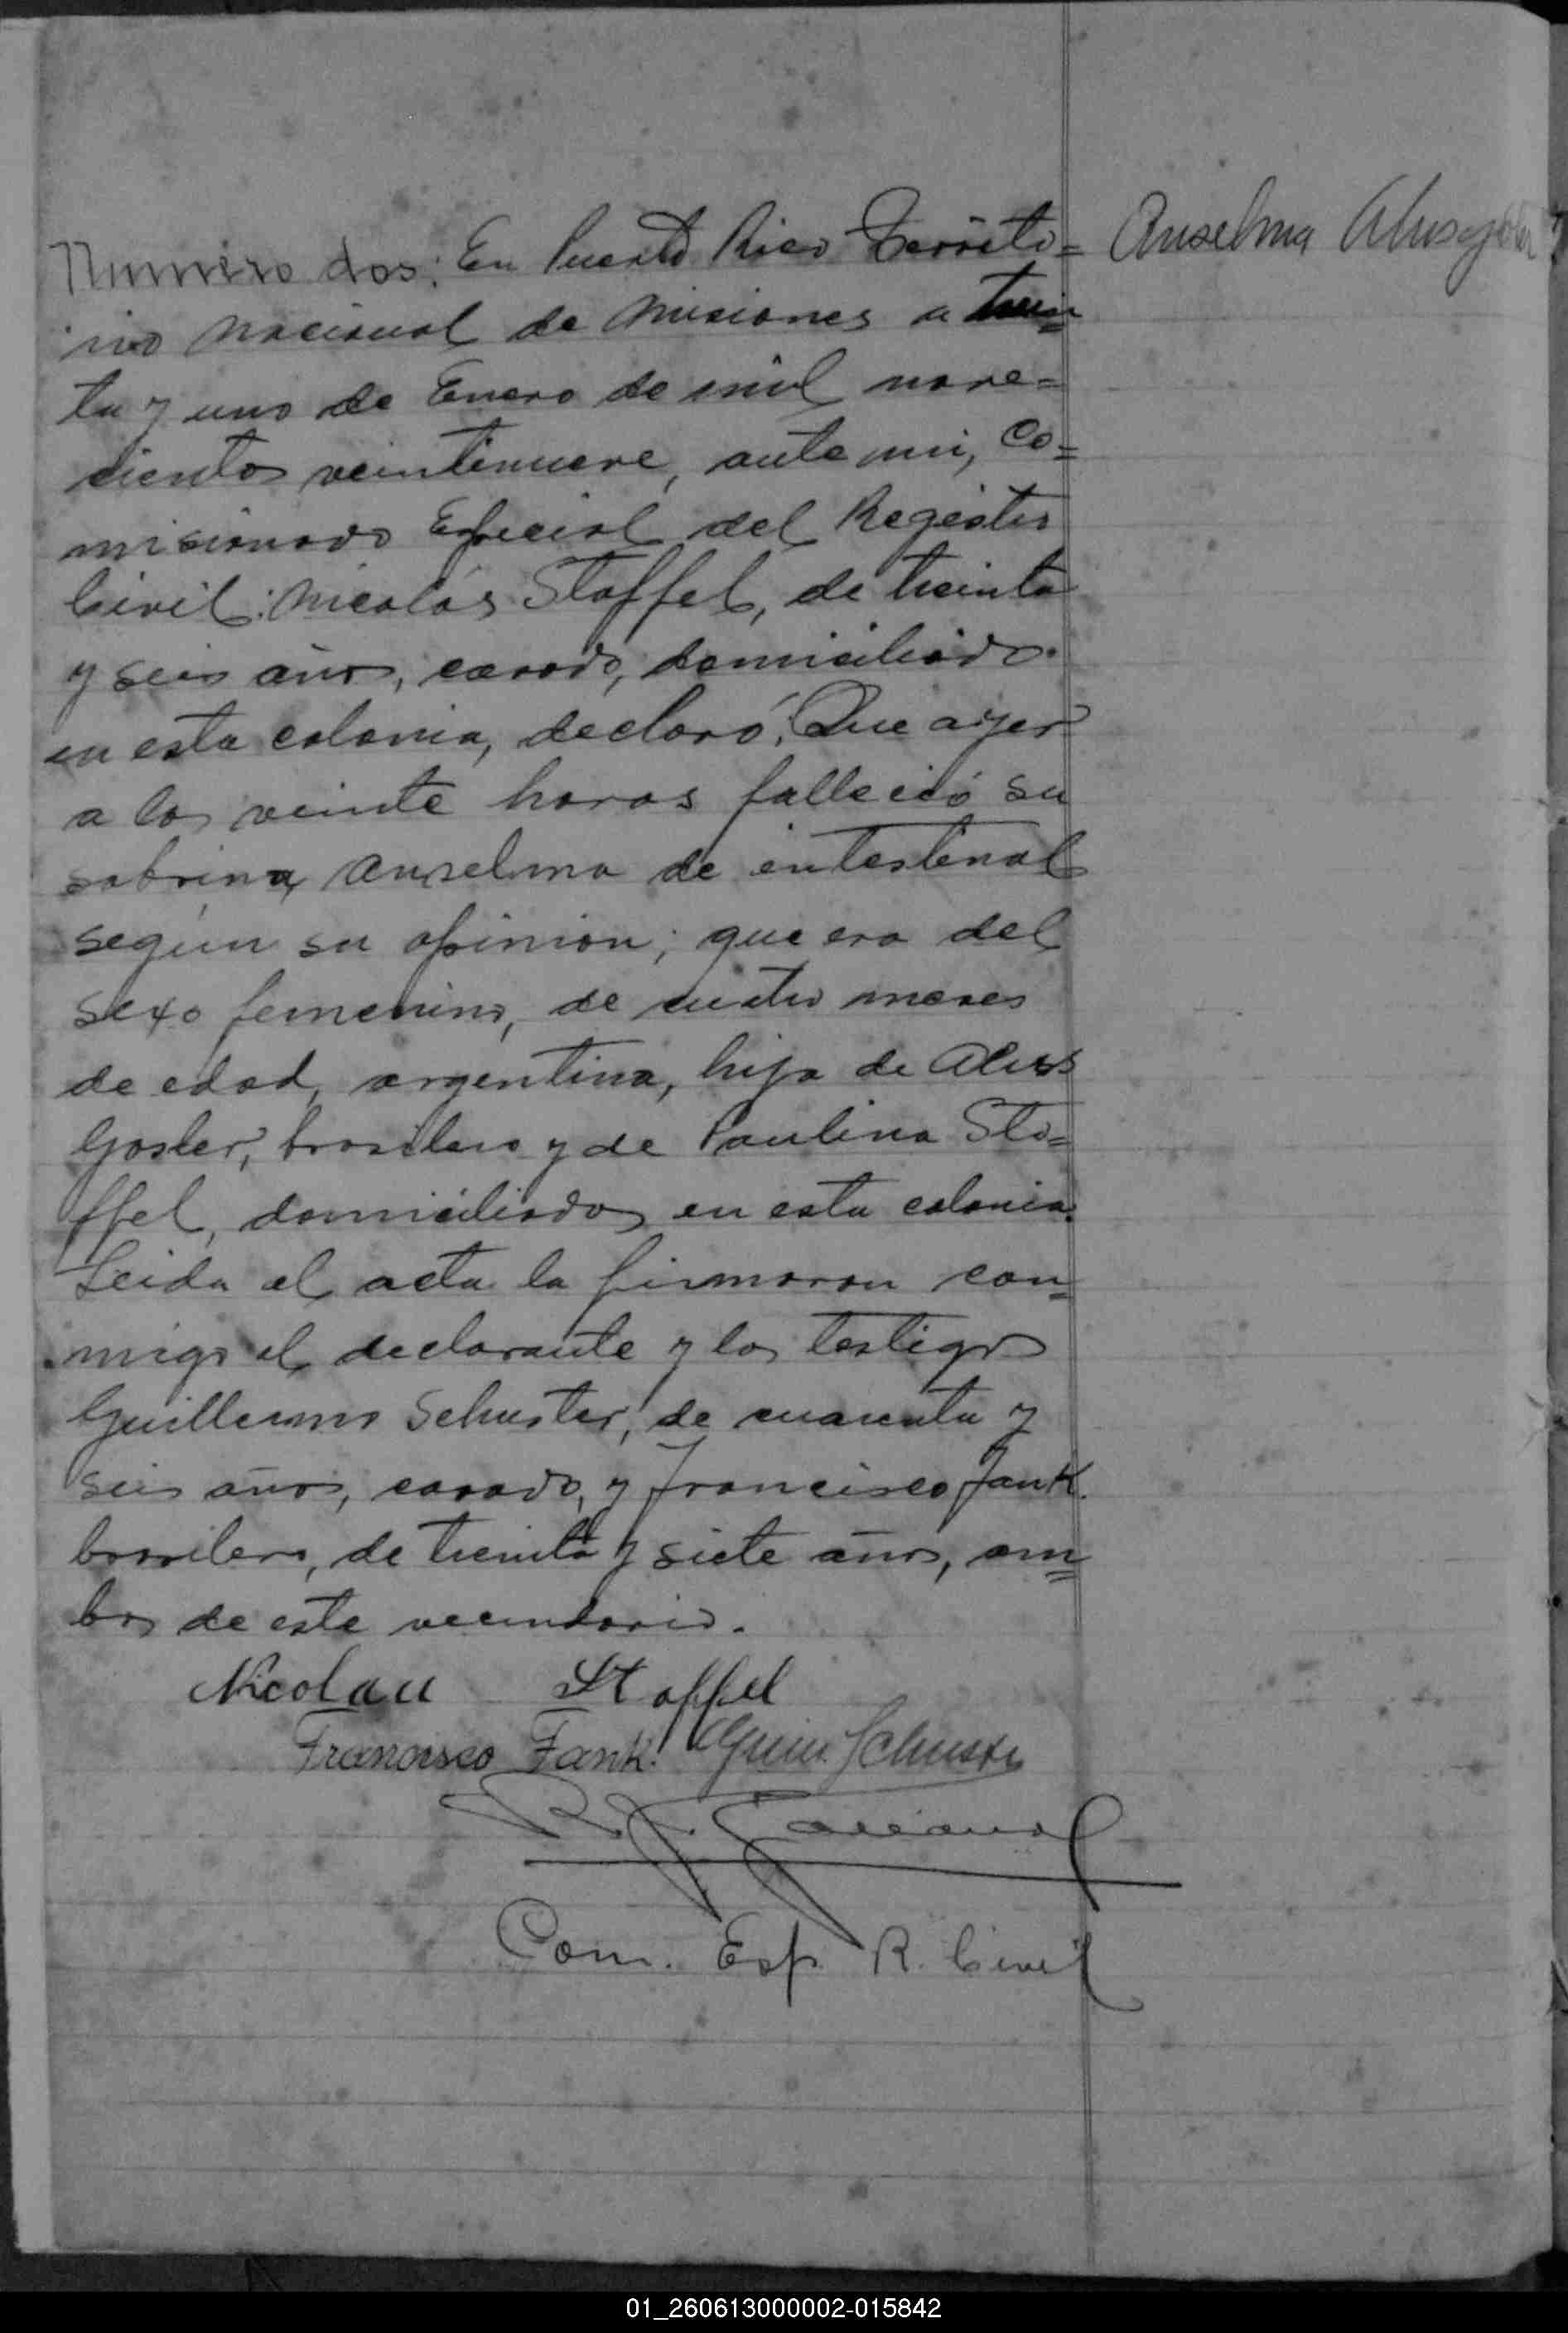 Numero dos: En Puerto Rico Territo=
rio Nacional de Misiones a trein=
ta y uno de Enero de mil nove=
cientos veintinueve, ante mi, Co=
misionado Especial del Registro
Civil: Nicolás Stoffel, de treinta
y seis años, casado, domiciliado
en esta colonia, declaró: Que ayer
a las veinte horas falleció su
sobrina Anselma de intestinal
según su opinion; que era del
sexo femenino, de cuatro meses
de edad, argentina, hija de
Gosler, brasilero y de Paulina Sto=
ffel, domiciliados en esta colonia.
Leida el acta la firmaron con=
migo el declarante y los testigos
Guillermo Schuster, de cuarenta y
seis años, casado, y Francisco Fank
brasilero, de treinta y siete años, am=
bos de este vecindario.
Anselma
Nicolau Stoffel
Francisco Fank. Guill. Schuster
Com. Esp. R. Civil
01_260613000002-015842